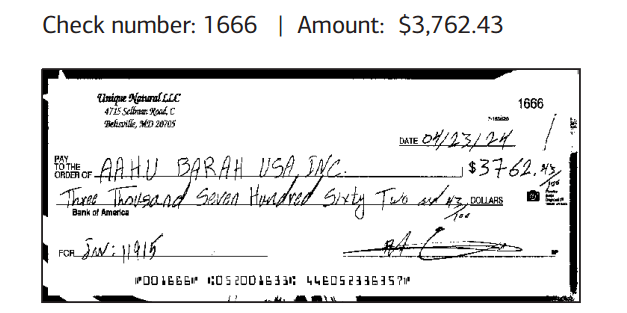 Check number: 1666 | Amount: $3,762.43
Unique Natural LLC
4715 Sellman Road, C
Beltsville, MD 20705
1666
DATE 04/23/24
PAY TO THE ORDER OF AAHU BARAH USA, INC. $3762.43/100
Three Thousand Seven Hundred Sixty Two and 43/100 DOLLARS
Bank of America
FOR INV: 11915
⑈001666⑈ ⑆052001633⑆ 446052336357⑈